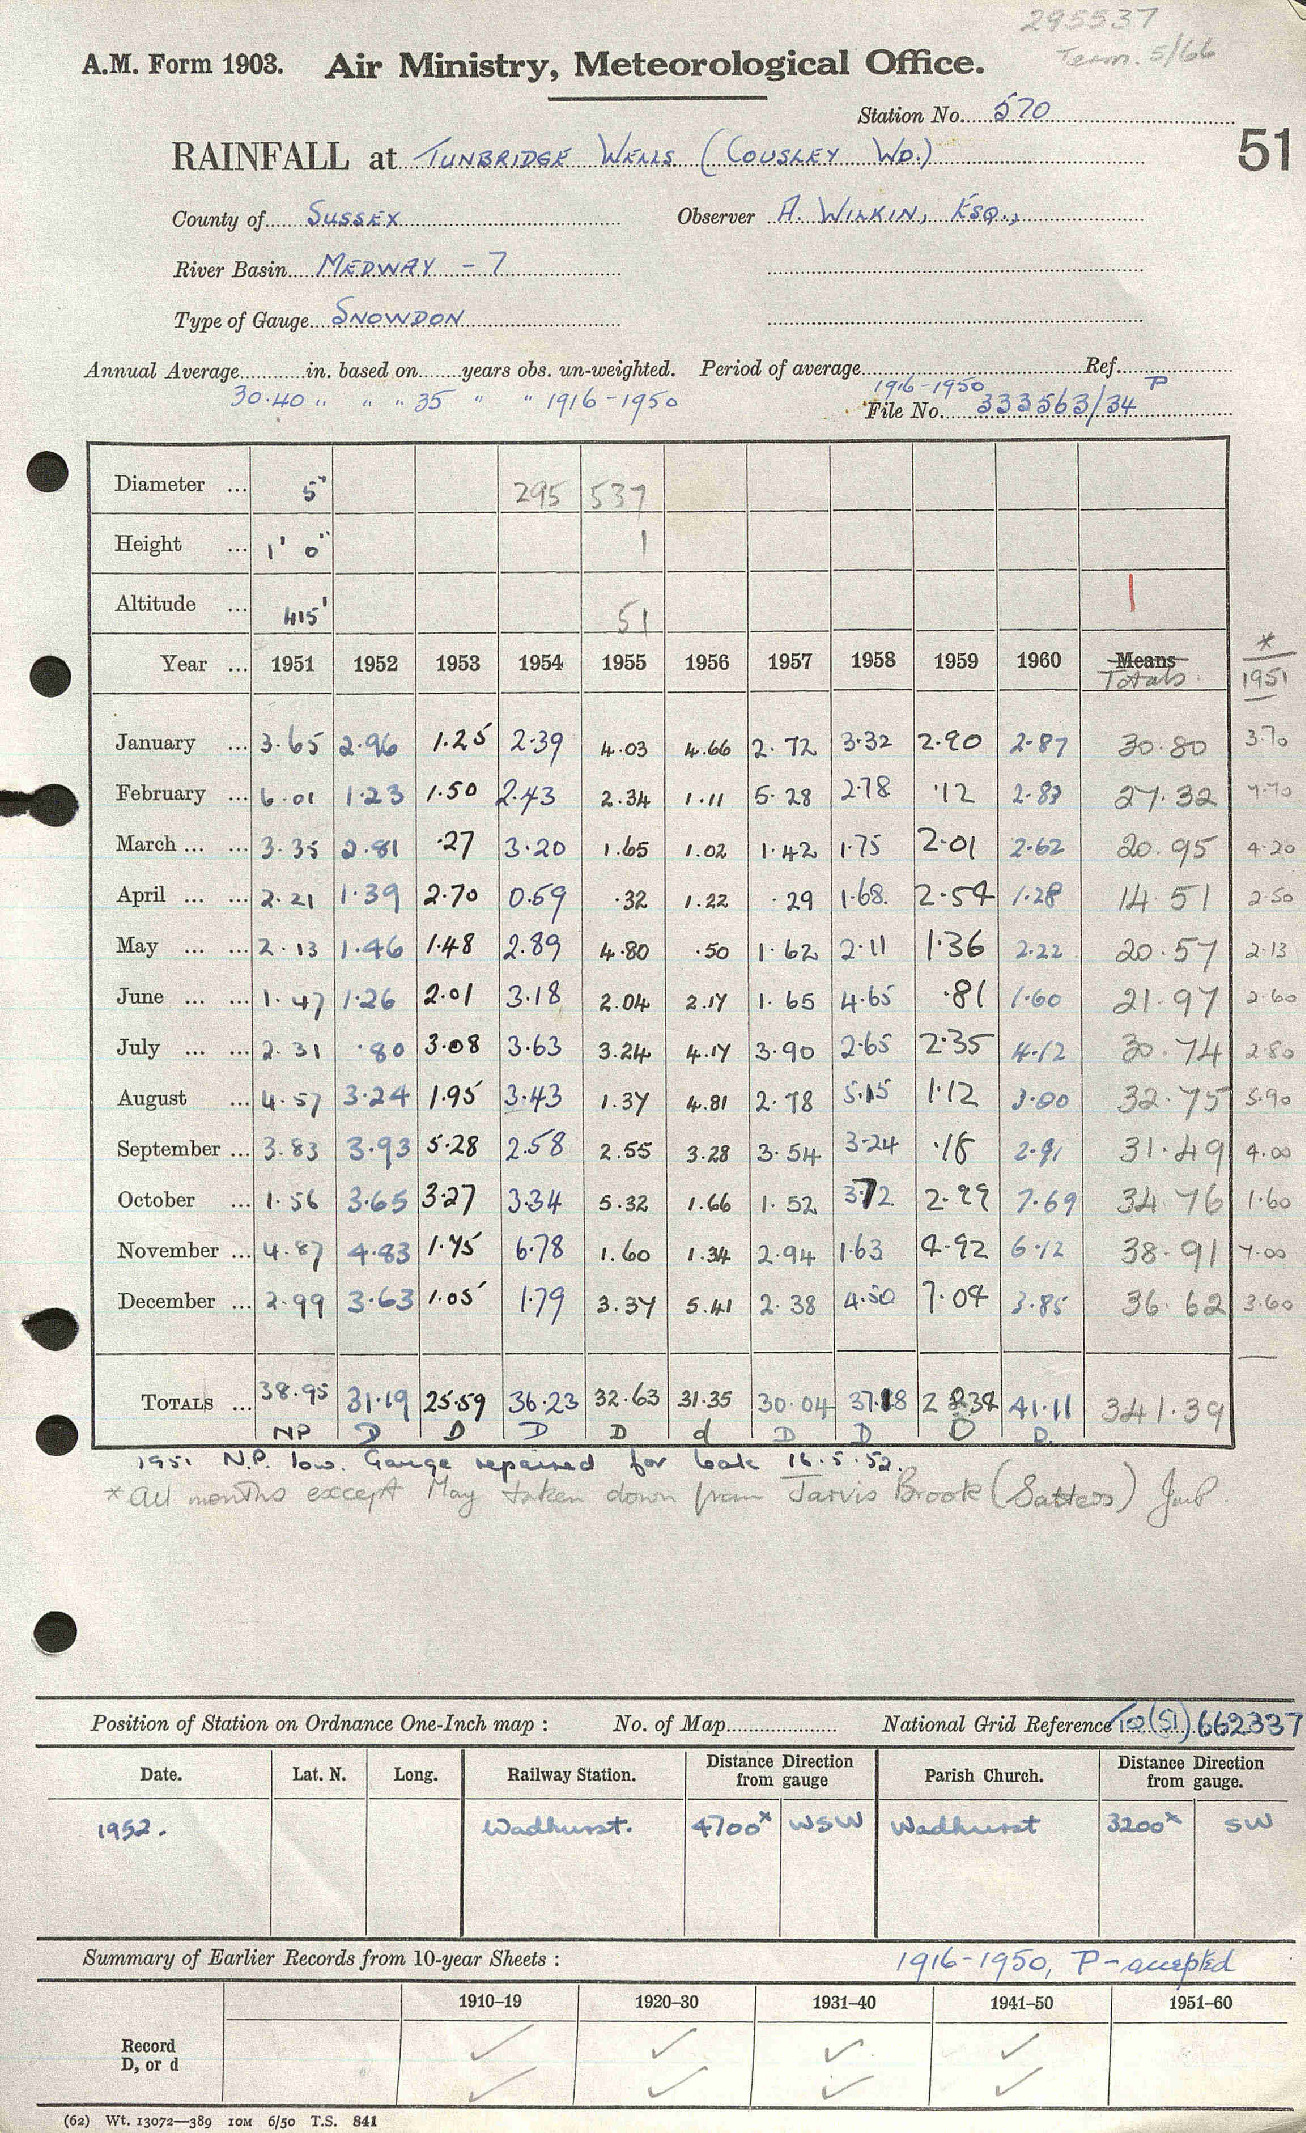 295537
Term. 5/66
A.M. Form 1903. Air Ministry, Meteorological Office.
Station No. 570
51
RAINFALL at TUNBRIDGE WELLS (COUSLEY WD.)
County of SUSSEX Observer A. WILKIN, ESQ.,
River Basin MEDWAY - 7
Type of Gauge SNOWDON
Annual Average in. based on years obs. un-weighted. Period of average 1916-1950 Ref. P
30.40 " " " 35 " " 1916-1950 File No. 333563/34
Diameter ... 5" 295 537
Height ... 1' 0" 1
Altitude ... 415' 51 1
Year ... 1951 1952 1953 1954 1955 1956 1957 1958 1959 1960 Means Totals * 1951
January ... 3.65 2.96 1.25 2.39 4.03 4.66 2.72 3.32 2.90 2.87 30.80 3.70
February ... 6.01 1.23 1.50 2.43 2.34 1.11 5.28 2.78 .12 2.83 27.32 7.70
March ... ... 3.35 2.81 .27 3.20 1.65 1.02 1.42 1.75 2.01 2.62 20.95 4.20
April ... ... 2.21 1.39 2.70 0.59 .32 1.22 .29 1.68 2.54 1.28 14.51 2.50
May ... ... 2.13 1.46 1.48 2.89 4.80 .50 1.62 2.11 1.36 2.22 20.57 2.13
June ... ... 1.47 1.26 2.01 3.18 2.04 2.17 1.65 4.65 .81 1.60 21.97 2.60
July ... ... 2.31 .80 3.08 3.63 3.24 4.17 3.90 2.65 2.35 4.12 30.74 2.80
August ... 4.57 3.24 1.95 3.43 1.37 4.81 2.78 5.15 1.12 3.00 32.75 5.90
September ... 3.83 3.93 5.28 2.58 2.55 3.28 3.54 3.24 .18 2.91 31.49 4.00
October ... 1.56 3.65 3.27 3.34 5.32 1.66 1.52 3.72 2.99 7.69 34.76 1.60
November ... 4.87 4.83 1.75 6.78 1.60 1.34 2.94 1.63 4.92 6.12 38.91 7.00
December ... 2.99 3.63 1.05 1.79 3.37 5.41 2.38 4.50 7.04 3.85 36.62 3.60
TOTALS ... 38.95 31.19 25.59 36.23 32.63 31.35 30.04 37.18 28.34 41.11 341.39
NP D D D D d D D D D
1951 N.P. low. Gauge repaired for leak 16.5.52.
* All months except May taken down from Jarvis Brook (Satters)
Position of Station on Ordnance One-Inch map : No. of Map National Grid Reference TQ(51) 662337
Date. Lat. N. Long. Railway Station. Distance Direction from gauge Parish Church. Distance Direction from gauge.
1952. Wadhurst. 4700x WSW Wadhurst 3200x SW
Summary of Earlier Records from 10-year Sheets : 1916-1950, P-accepted
1910–19 1920–30 1931–40 1941–50 1951–60
Record
D, or d
(62) Wt. 13072—389 10M 6/50 T.S. 841